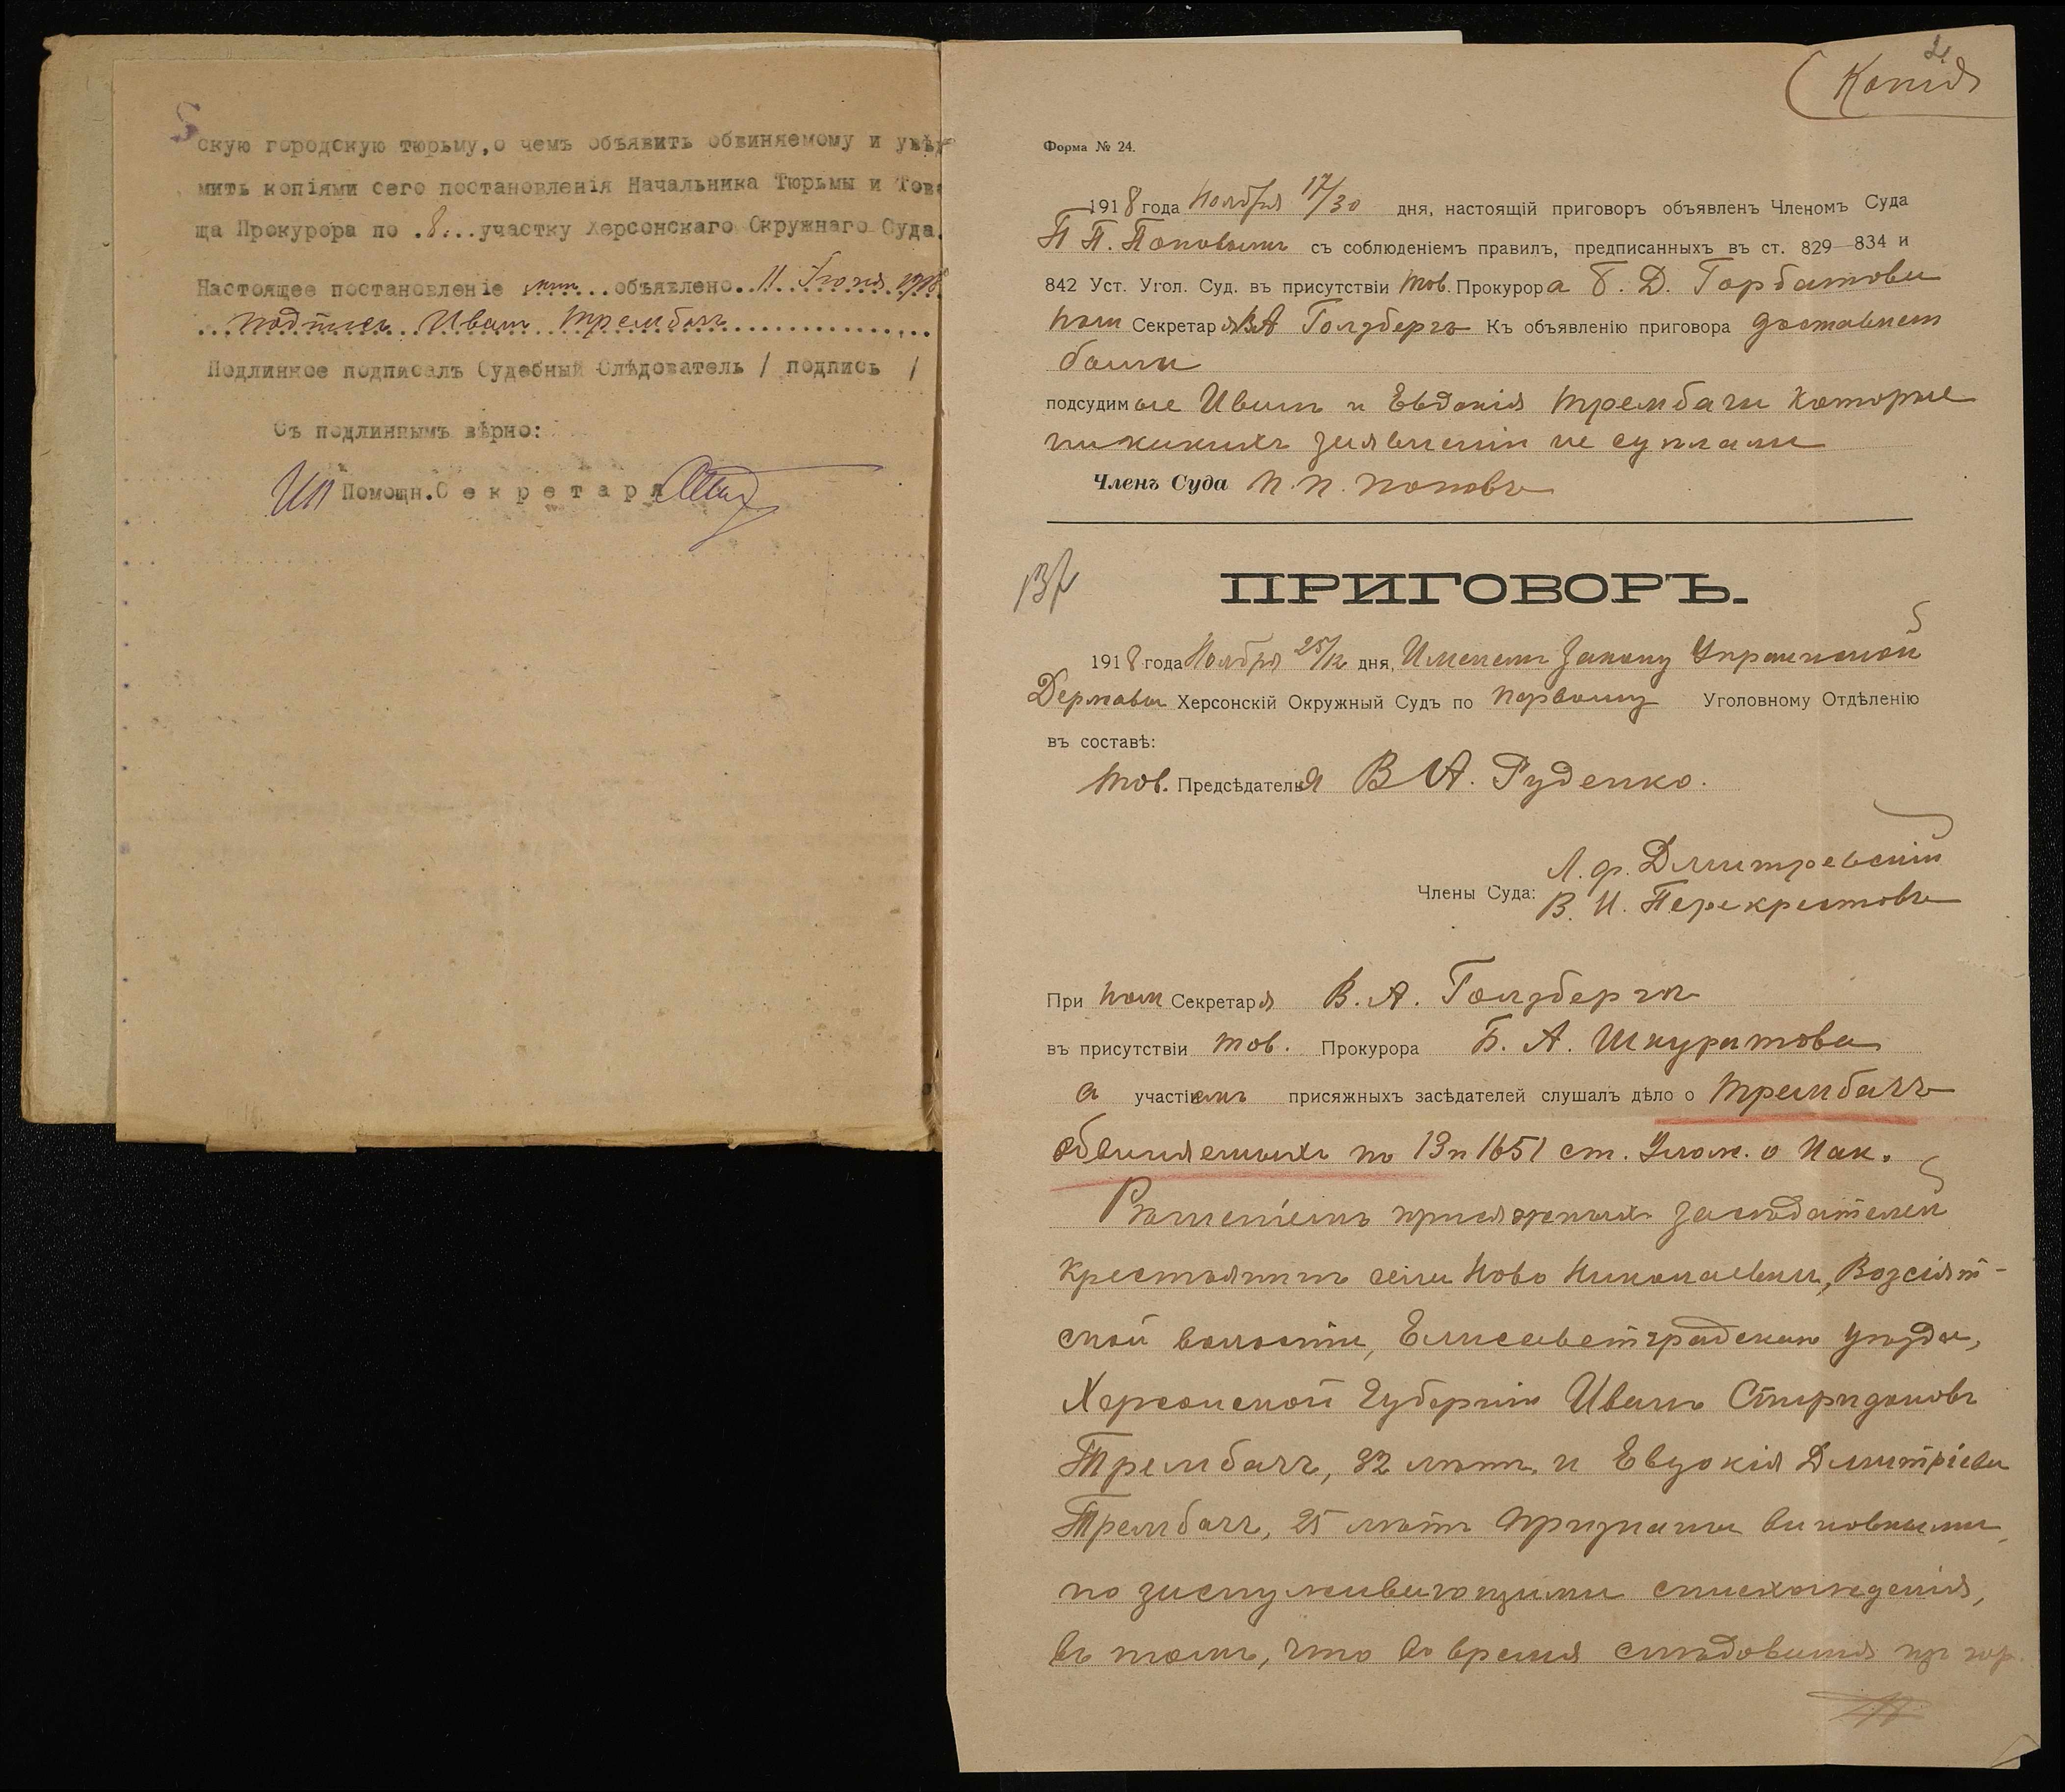 скую городскую тюрьму, о чемъ объявить обвиняемому и увѣдо
мить копіями сего постановленія Начальника Тюрьмы и Това
ща Прокурора по .8... участку Херсонскаго Окружнаго Суда.
Настоящее постановленіе мнѣ...объявлено..11 Іюня 1918
...подпись Иванъ Трембачъ...
Подлинное подписалъ Судебный Слѣдователь / подпись /
Съ подлиннымъ вѣрно:
ИП Помощн. Секретаря
2
Копія
Форма № 24.
1918 года Ноября 17/30 дня, настоящій приговоръ объявленъ Членомъ Суда
П П. Поповымъ съ соблюденіемъ правилъ, предписанныхъ въ ст. 829—834 и
842 Уст. Угол. Суд. въ присутствіи Тов. Прокурора Б. Д. Горбатова
пом Секретаря ВА Голдбергъ Къ объявленію приговора доставлены
были
подсудимые Иванъ и Евдокія Трембачи которые
никакихъ заявленій не сдѣлали
Членъ Суда П. П. Поповъ
ПРИГОВОРЪ.
1918 года Ноября 25/12 дня, Именемъ Закону Украинской
Державы Херсонскій Окружный Судъ по первому Уголовному Отдѣленію
въ составѣ:
Тов. Предсѣдателя В А. Руденко.
Л. Ф. Дмитревскій
Члены Суда:
В. И. Перекрестовъ
При пом Секретаря В. А. Голдбергъ
въ присутствіи тов. Прокурора Б. А. Шкуратова
съ участіемъ присяжныхъ засѣдателей слушалъ дѣло о Трембачъ
обвиняемыхъ по 13 и 1651 ст. Улож. о Нак.
Рѣшеніемъ присяжныхъ засѣдателей
крестьянинъ села Ново Николаевки, Возсіят-
ской волости, Елисаветградскаго уѣзда,
Херсонской Губерніи Иванъ Спиридоновъ
Трембачъ, 32 лѣтъ, и Евдокія Дмитріева
Трембачъ, 25 лѣтъ признаны виновными,
но заслуживающими снисхожденія,
въ томъ, что во время слѣдованія изъ гор.